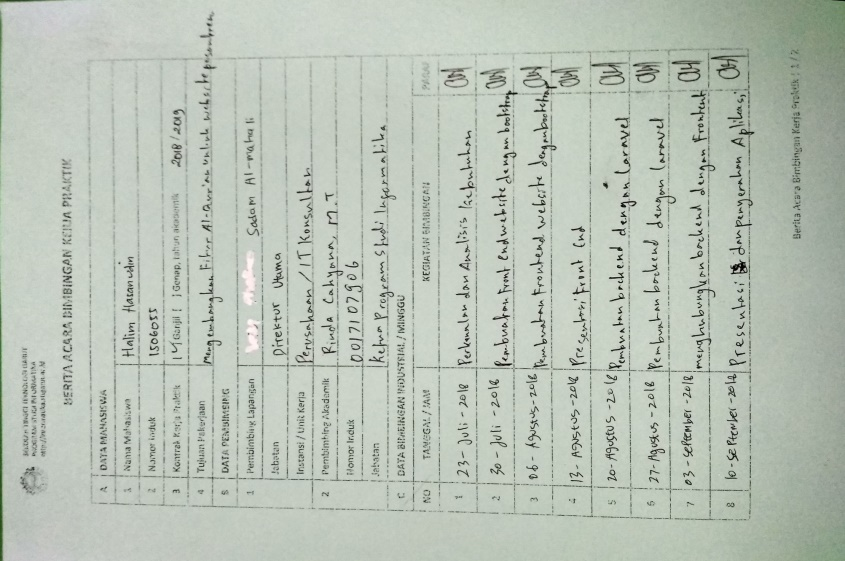 SEKOLAH TINGGI TEKNOLOGI GARUT
PROGRAM STUDI INFORMATIKA
BERITA ACARA BIMBINGAN KERJA PRAKTIK
A DATA MAHASISWA
1 Nama Mahasiswa Halim Hasanudin
2 Nomor Induk 1506055
3 Kontrak Kerja Praktik Ganjil [ ] Genap, tahun akademik 2018/2019
4 Tujuan Pekerjaan Mengembangkan Fitur Al-Qur'an untuk website pesantren
B DATA PEMBIMBING
1 Pembimbing Lapangan Sadam Al-mahali
Jabatan Direktur Utama
Instansi / Unit Kerja Perusahaan / IT Konsultan
2 Pembimbing Akademik Rinda Cahyana, M.T
Nomor Induk 0017107906
Jabatan Ketua Program Studi Informatika
C DATA BIMBINGAN INDUSTRIAL / MINGGU
NO TANGGAL / JAM KEGIATAN BIMBINGAN PARAF
1 23 - Juli - 2018 Perkenalan dan Analisis Kebutuhan
2 30 - Juli - 2018 Pembuatan Front End website dengan bootstrap
3 06 - Agustus - 2018 Pembuatan Frontend website dengan bootstrap
4 13 - Agustus - 2018 Presentasi Front End
5 20 - Agustus - 2018 Pembuatan backend dengan Laravel
6 27 - Agustus - 2018 Pembuatan backend dengan laravel
7 03 - September - 2018 menghubungkan backend dengan Frontent
8 10 - September - 2018 Presentasi dan penyerahan Aplikasi
Berita Acara Bimbingan Kerja Praktik : 1 / 2